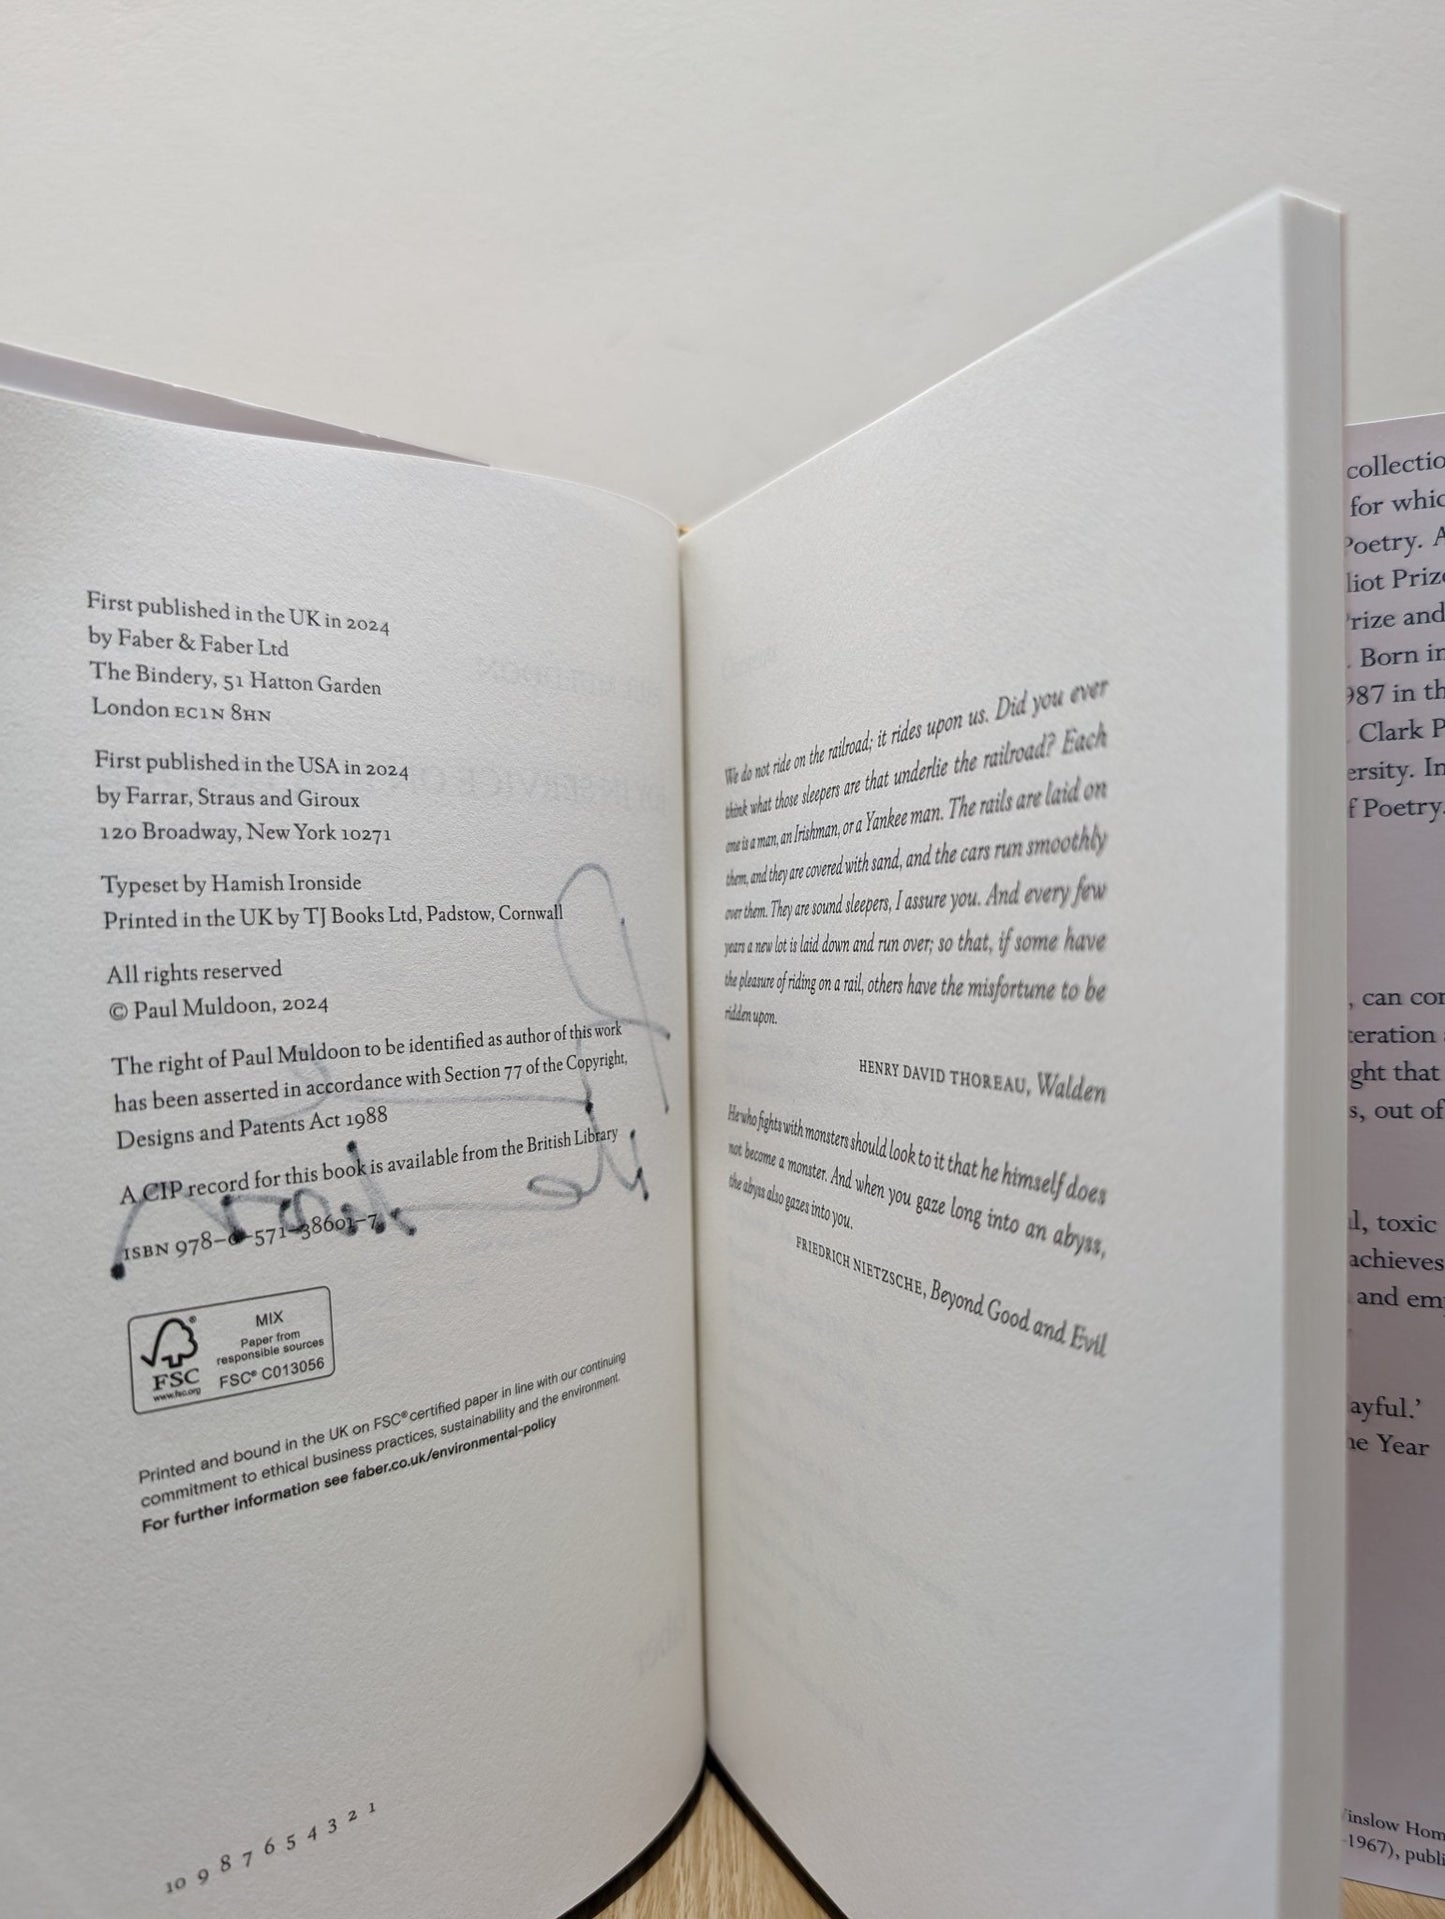 First published in the UK in 2024
by Faber & Faber Ltd
The Bindery, 51 Hatton Garden
London EC1N 8HN
First published in the USA in 2024
by Farrar, Straus and Giroux
120 Broadway, New York 10271
Typeset by Hamish Ironside
Printed in the UK by TJ Books Ltd, Padstow, Cornwall
All rights reserved
© Paul Muldoon, 2024
The right of Paul Muldoon to be identified as author of this work
has been asserted in accordance with Section 77 of the Copyright,
Designs and Patents Act 1988
A CIP record for this book is available from the British Library
ISBN 978-0-571-38601-7
FSC®
www.fsc.org
MIX
Paper from
responsible sources
FSC® C013056
Printed and bound in the UK on FSC® certified paper in line with our continuing
commitment to ethical business practices, sustainability and the environment.
For further information see faber.co.uk/environmental-policy
10 9 8 7 6 5 4 3 2 1
We do not ride on the railroad; it rides upon us. Did you ever
think what those sleepers are that underlie the railroad? Each
one is a man, an Irishman, or a Yankee man. The rails are laid on
them, and they are covered with sand, and the cars run smoothly
over them. They are sound sleepers, I assure you. And every few
years a new lot is laid down and run over; so that, if some have
the pleasure of riding on a rail, others have the misfortune to be
ridden upon.
HENRY DAVID THOREAU, Walden
He who fights with monsters should look to it that he himself does
not become a monster. And when you gaze long into an abyss,
the abyss also gazes into you.
FRIEDRICH NIETZSCHE, Beyond Good and Evil
collectio
for whic
Poetry. A
liot Prize
Prize and
. Born in
987 in th
Clark P
ersity. In
f Poetry.
, can con
teration
ght that
s, out of
l, toxic
achieves
and em
ayful.'
he Year
inslow Hom
-1967), publi